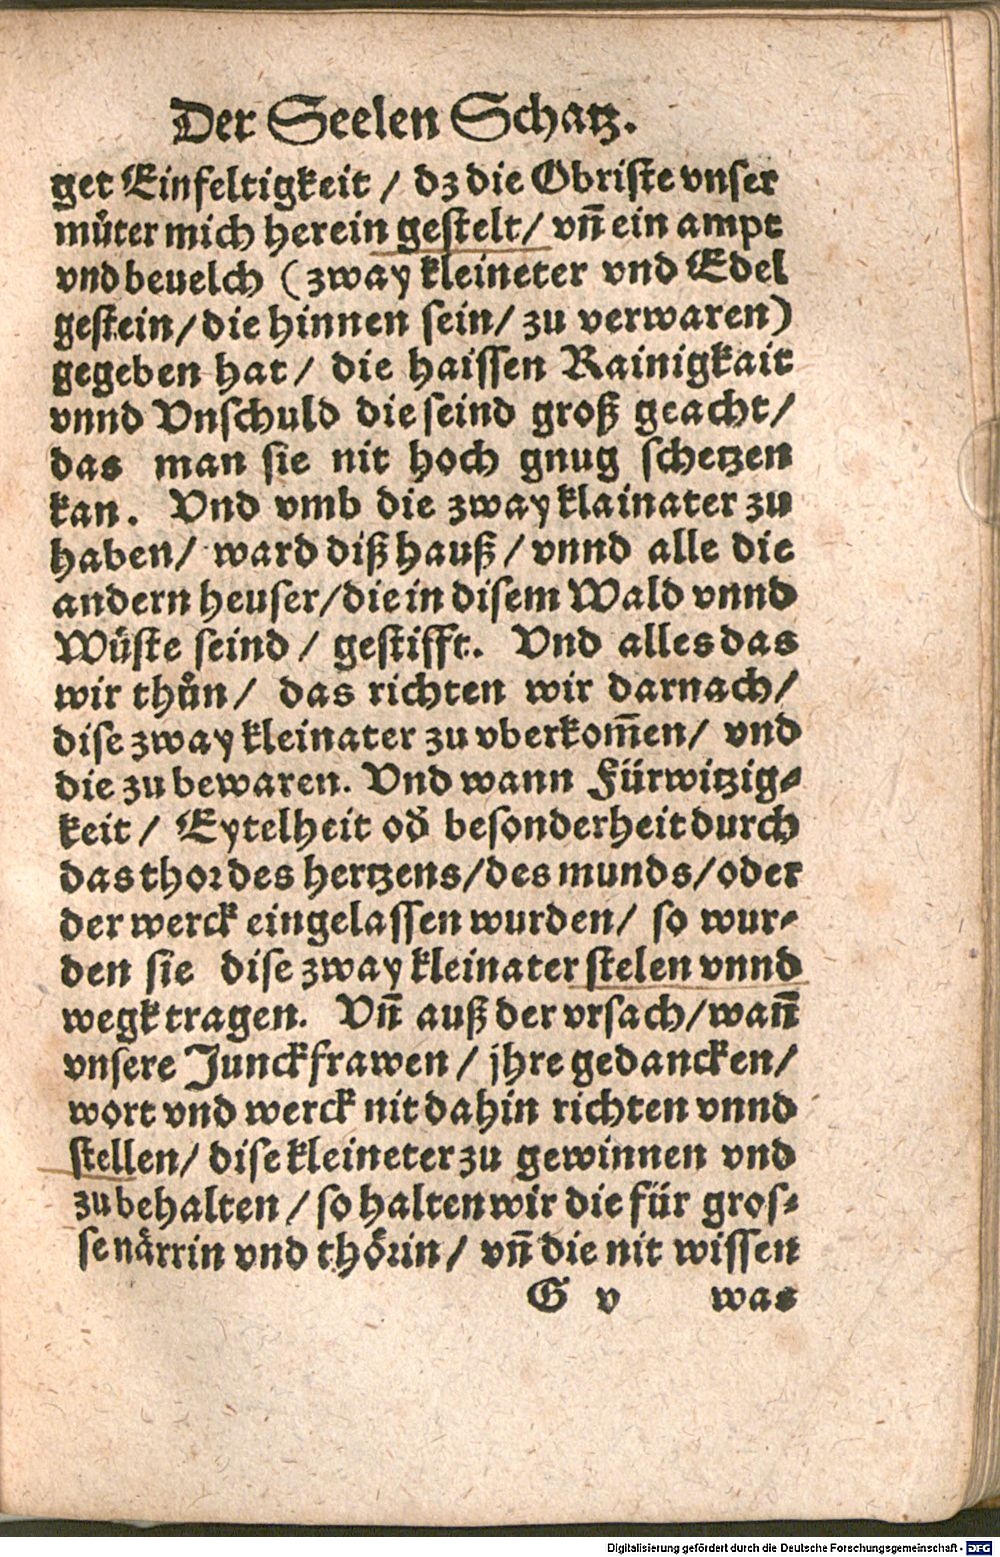 Der Seelen Schatz.
get Einfeltigkeit / dz die Obriste vnser
můter mich herein gestelt / vñ ein ampt
vnd beuelch (zway kleineter vnd Edel
gestein / die hinnen sein / zu verwaren)
gegeben hat / die haissen Rainigkait
vnnd Vnschuld die seind groß geacht /
das man sie nit hoch gnug schetzen
kan. Vnd vmb die zway klainater zu
haben / ward diß hauß / vnnd alle die
andern heuser / die in disem Wald vnnd
Wüste seind / gestifft. Vnd alles das
wir thůn / das richten wir darnach /
dise zway kleinater zu vberkom̃en / vnd
die zu bewaren. Vnd wann Fürwitzig-
keit / Eytelheit oď besonderheit durch
das thor des hertzens / des munds / oder
der werck eingelassen wurden / so wur-
den sie dise zway kleinater stelen vnnd
wegk tragen. Vñ auß der vrsach / wañ
vnsere Junckfrawen / jhre gedancken /
wort vnd werck nit dahin richten vnnd
stellen / dise kleineter zu gewinnen vnd
zu behalten / so halten wir die für gros-
se närrin vnd thörin / vñ die nit wissen
G v was
Digitalisierung gefördert durch die Deutsche Forschungsgemeinschaft - DFG